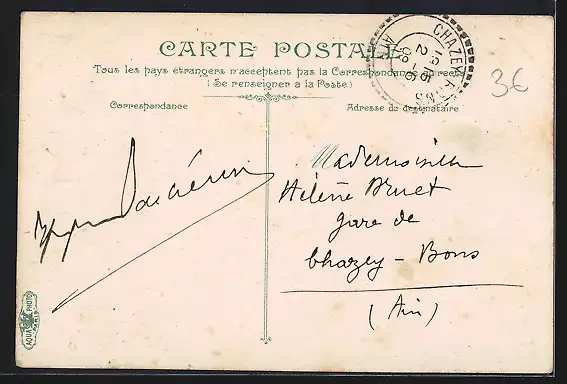 CARTE POSTALE
Tous les pays étrangers n'acceptent pas la Correspondance au recto
(Se renseigner à la Poste)
Correspondance
Adresse du destinataire
CHAZEY
AIN
3€
Mademoiselle
Hélène Bruet
gare de
Chazey-Bons
(Ain)
AQUA PHOTO
PARIS